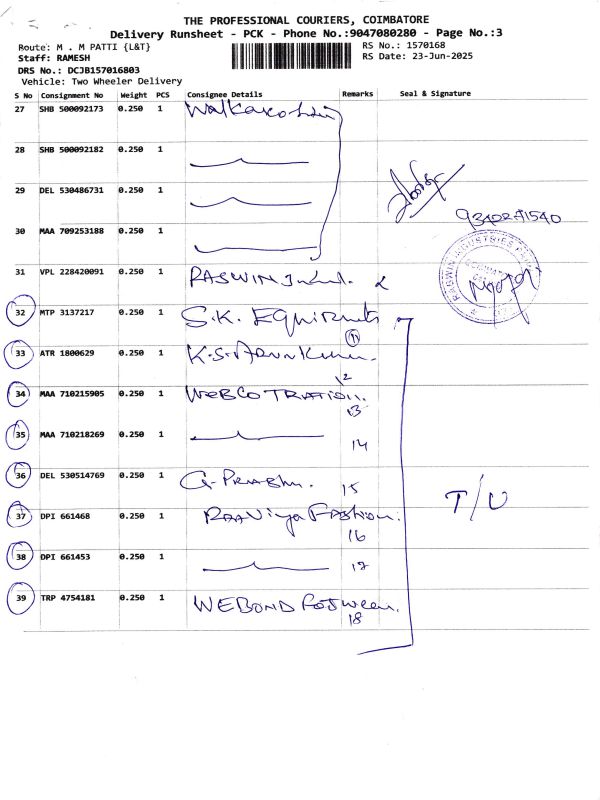 THE PROFESSIONAL COURIERS, COIMBATORE
Delivery Runsheet - PCK - Phone No.:9047080280 - Page No.:3
Route: M . M PATTI {L&T} RS No.: 1570168
Staff: RAMESH RS Date: 23-Jun-2025
DRS No.: DCJB157016803
Vehicle: Two Wheeler Delivery
S No Consignment No Weight PCS Consignee Details Remarks Seal & Signature
27 SHB 500092173 0.250 1
28 SHB 500092182 0.250 1
29 DEL 530486731 0.250 1
30 MAA 709253188 0.250 1
31 VPL 228420091 0.250 1 RASWIN
32 MTP 3137217 0.250 1 S.K. Equipments
11
33 ATR 1800629 0.250 1 K.S. Arun Kumar.
12
34 MAA 710215905 0.250 1 WEBCOTRATION.
13
35 MAA 710218269 0.250 1
14
36 DEL 530514769 0.250 1 G. Prabhu.
15
37 DPI 661468 0.250 1 Fashion.
16
T/U
38 DPI 661453 0.250 1
17
39 TRP 4754181 0.250 1 WEBOND Footwear.
18